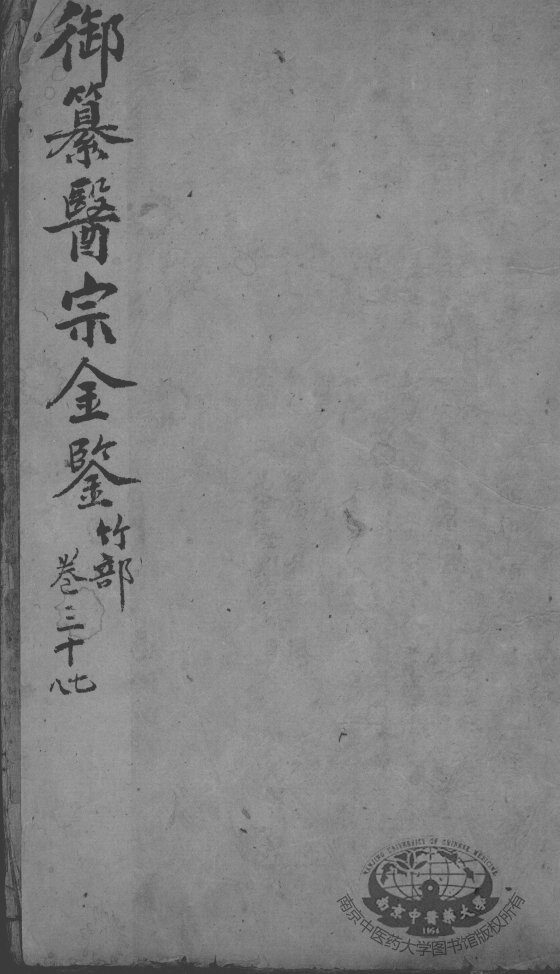 御纂醫宗金鑒
竹部
卷三十七八
NANJING UNIVERSITY OF CHINESE MEDICINE
南京中醫藥大學
1954
南京中医药大学图书馆版权所有